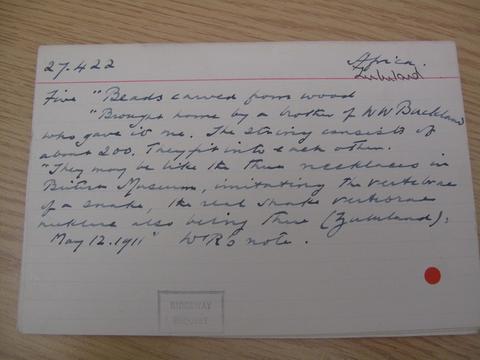 27.422
Africa.
Zululand
Five "Beads carved from wood
"Brought home by a brother of WW Buckland
who gave it me. The string consists of
about 200. They fit into each other.
"They may be like the three necklaces in
British Museum, imitating the vertebrae
of a snake, the real snake vertebrae
necklace also being there (Zululand):
May 12. 1911" WR's note.
RIDGEWAY
BEQUEST